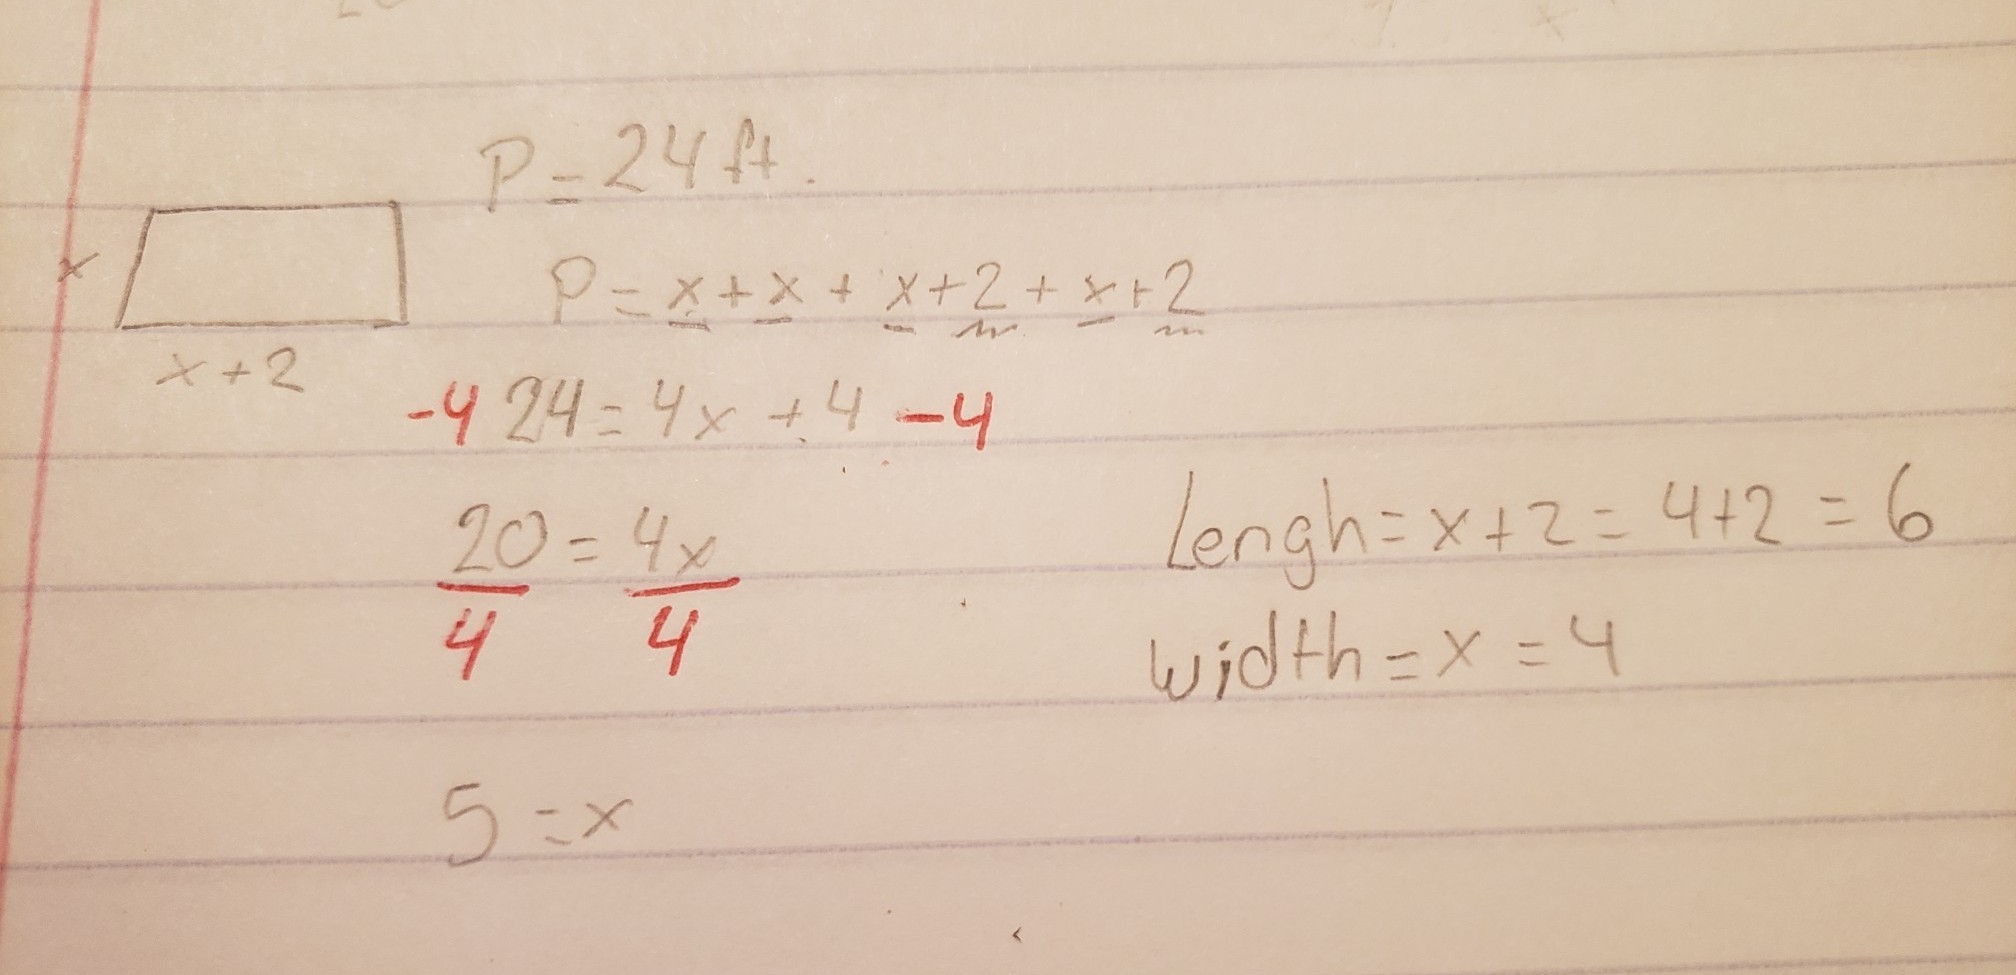 P = 24 ft.
x
P = x + x + x + 2 + x + 2
x + 2
-4 24 = 4x + 4 -4
20 = 4x
4 4
5 = x
Lengh = x + 2 = 4 + 2 = 6
width = x = 4